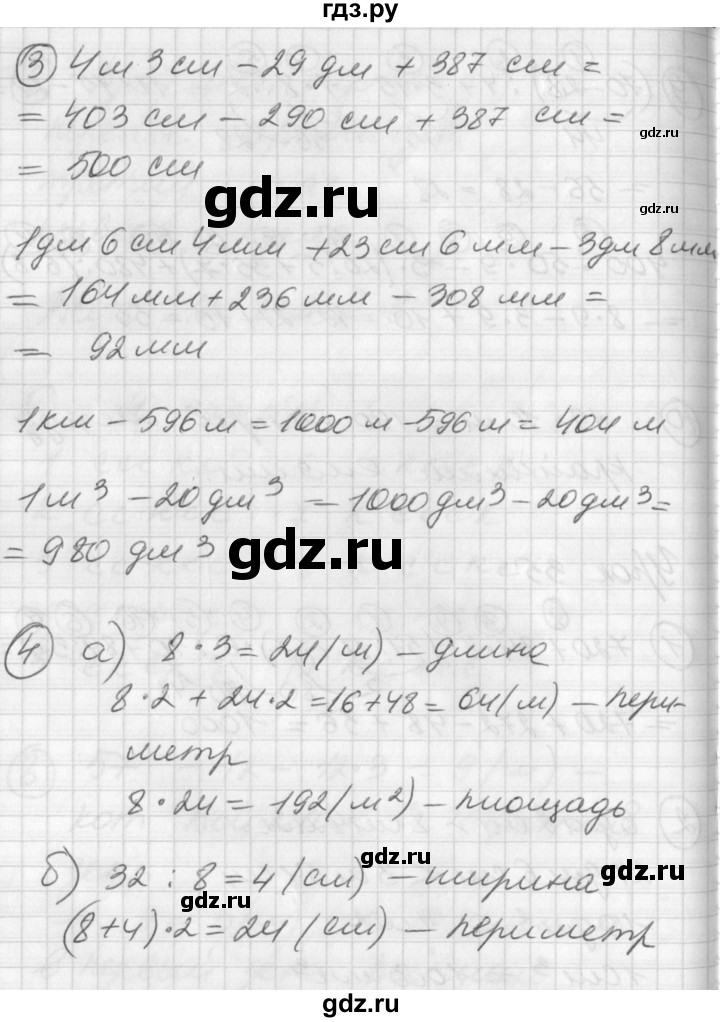 гдз.ру
③ 4м 3см – 29 дм + 387 см =
= 403 см – 290 см + 387 см =
gdz.ru
= 500 см
gdz.ru
gdz.ru
1дм 6см 4мм + 23см 6мм – 3дм 8мм
= 164мм + 236мм – 308мм =
= 92мм
1км – 596м = 1000м – 596м = 404м
1м³ – 20дм³ = 1000дм³ – 20дм³ =
= 980 дм³
gdz.ru
④ а) 8 · 3 = 24 (м) – длина
8 · 2 + 24 · 2 = 16 + 48 = 64 (м) – пери-
метр
8 · 24 = 192 (м²) – площадь
gdz.ru
б) 32 : 8 = 4 (см) – ширина
gdz.ru
gdz.ru
(8 + 4) · 2 = 24 (см) – периметр
gdz.ru